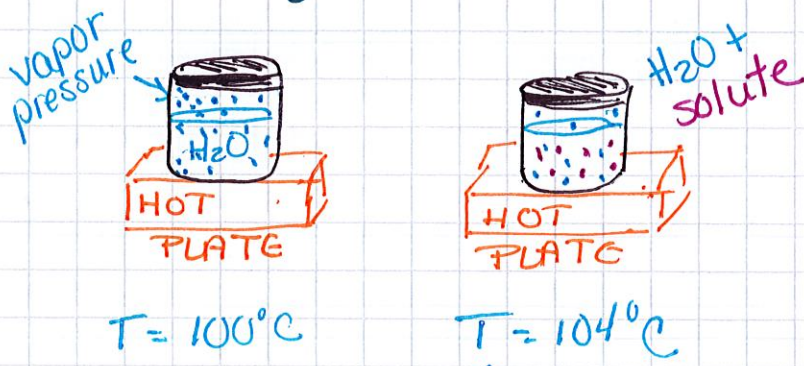 vapor
pressure
H₂O
HOT
PLATE
T = 100°C
H₂O +
solute
HOT
PLATE
T = 104°C